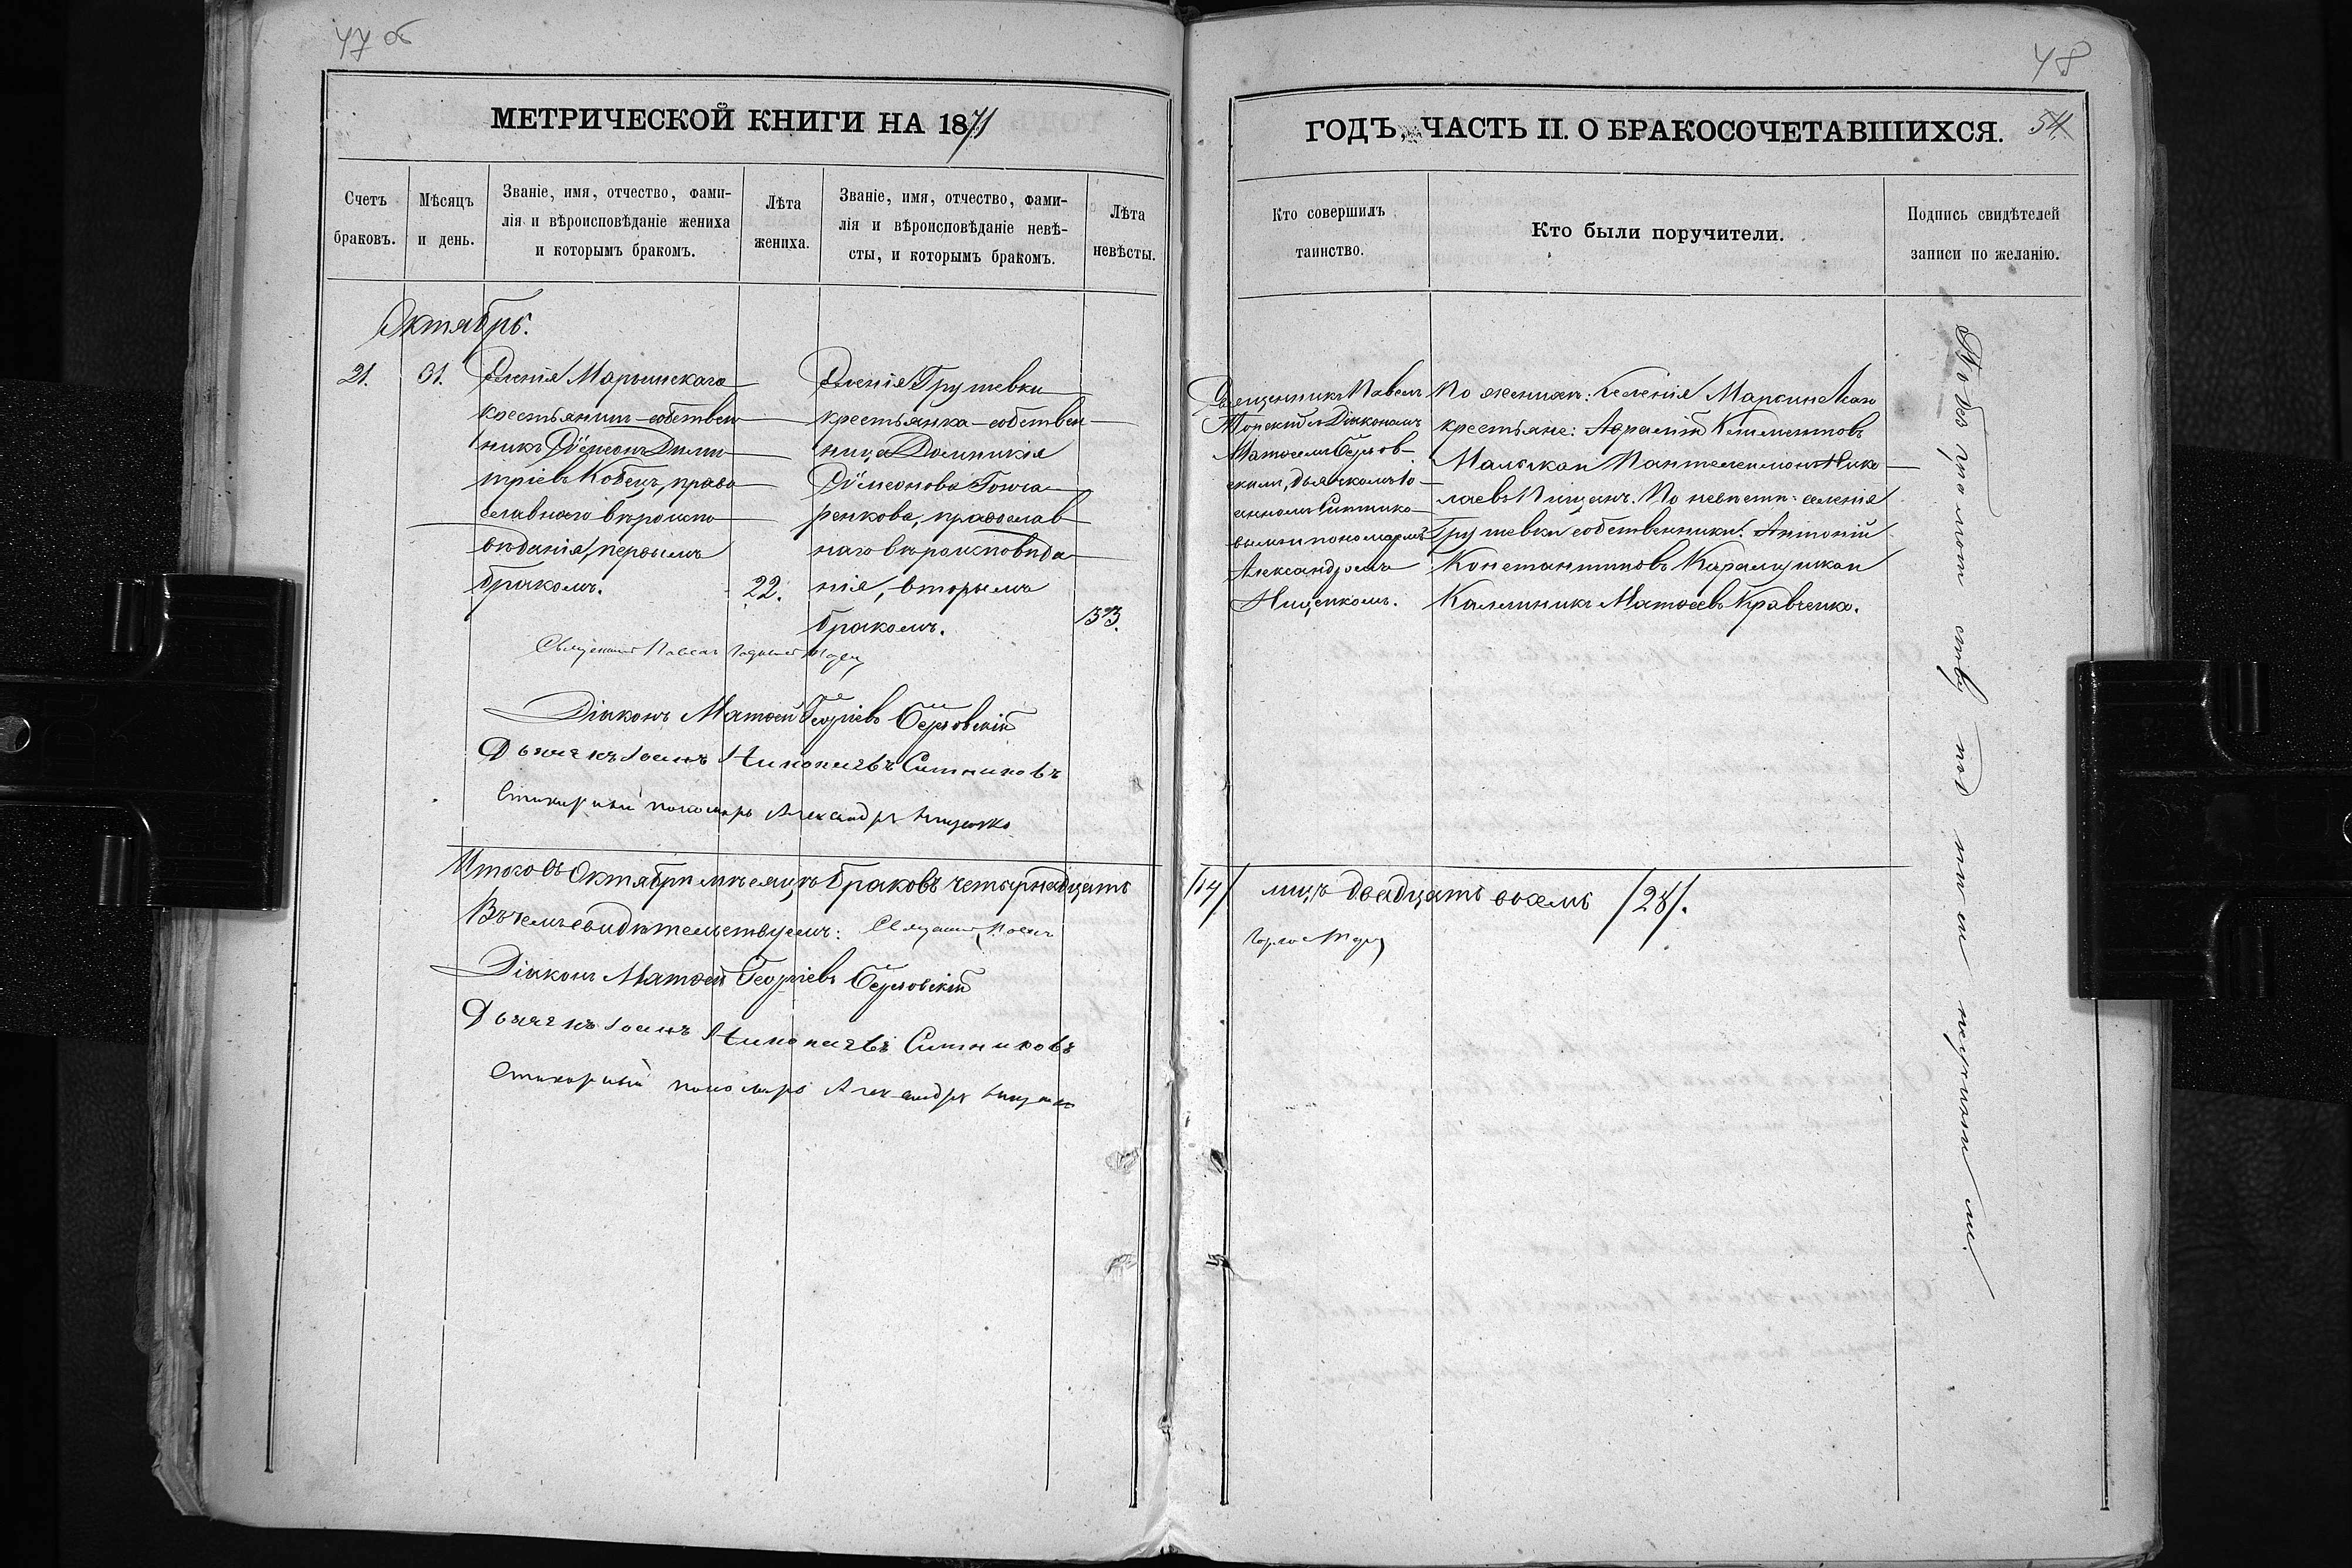 47 об
МЕТРИЧЕСКОЙ КНИГИ НА 1871
Счетъ браковъ.
Мѣсяцъ и день.
Званіе, имя, отчество, фами-
лія и вѣроисповѣданіе жениха
и которымъ бракомъ.
Лѣта жениха.
Званіе, имя, отчество, фами-
лія и вѣроисповѣданіе невѣ-
сты, и которымъ бракомъ.
Лѣта невѣсты.
Октябрь.
21.
31.
Селенія Марьинскаго
крестьянинъ-собствен
никъ Сѵмеонъ Дими
тріевъ Кобецъ, право
славнаго вѣроиспо
вѣданія, первымъ
бракомъ.
22.
Селенія Грушевки
крестьянка-собствен
ница Домникія
Сѵмеонова Гонча
ренкова, православ
наго вѣроисповѣда
нія, вторымъ
бракомъ.
33.
Священникъ Павелъ
Діаконъ Матѳей Георгіевъ
Дьячекъ Іоаннъ Николаевъ Ситниковъ
Стихарный пономарь Александръ Нищенко
Итого въ Октябрѣ мѣсяцѣ браковъ четырнадцать
Въ чемъ свидѣтельствуемъ: Священникъ Павелъ
Діаконъ Матѳей Георгіевъ
Дьячекъ Іоаннъ Николаевъ Ситниковъ
Стихарный пономарь Александръ Нищенко
48
54
ГОДЪ, ЧАСТЬ II. О БРАКОСОЧЕТАВШИХСЯ.
Кто совершилъ таинство.
Кто были поручители.
Подпись свидѣтелей записи по желанію.
Священникъ Павелъ
съ Діакономъ
Матѳеемъ
скимъ, дьячкомъ Іо
анномъ Ситнико
вымъ и пономаремъ
Александромъ
Нищенкомъ.
По женихѣ: селенія Марьинскаго
крестьяне: Климентовъ
и Пантелеимонъ Нико
лаевъ Пищикъ. По невѣстѣ: селенія
Грушевки собственники: Антоній
Константиновъ и
Каллиникъ Матѳеевъ Кравченко.
/14/ лицъ двадцать восемь /28/.